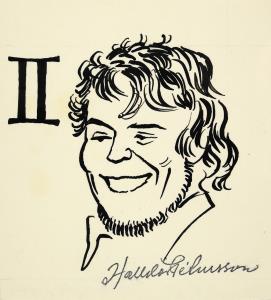 II
Halldór Pétursson